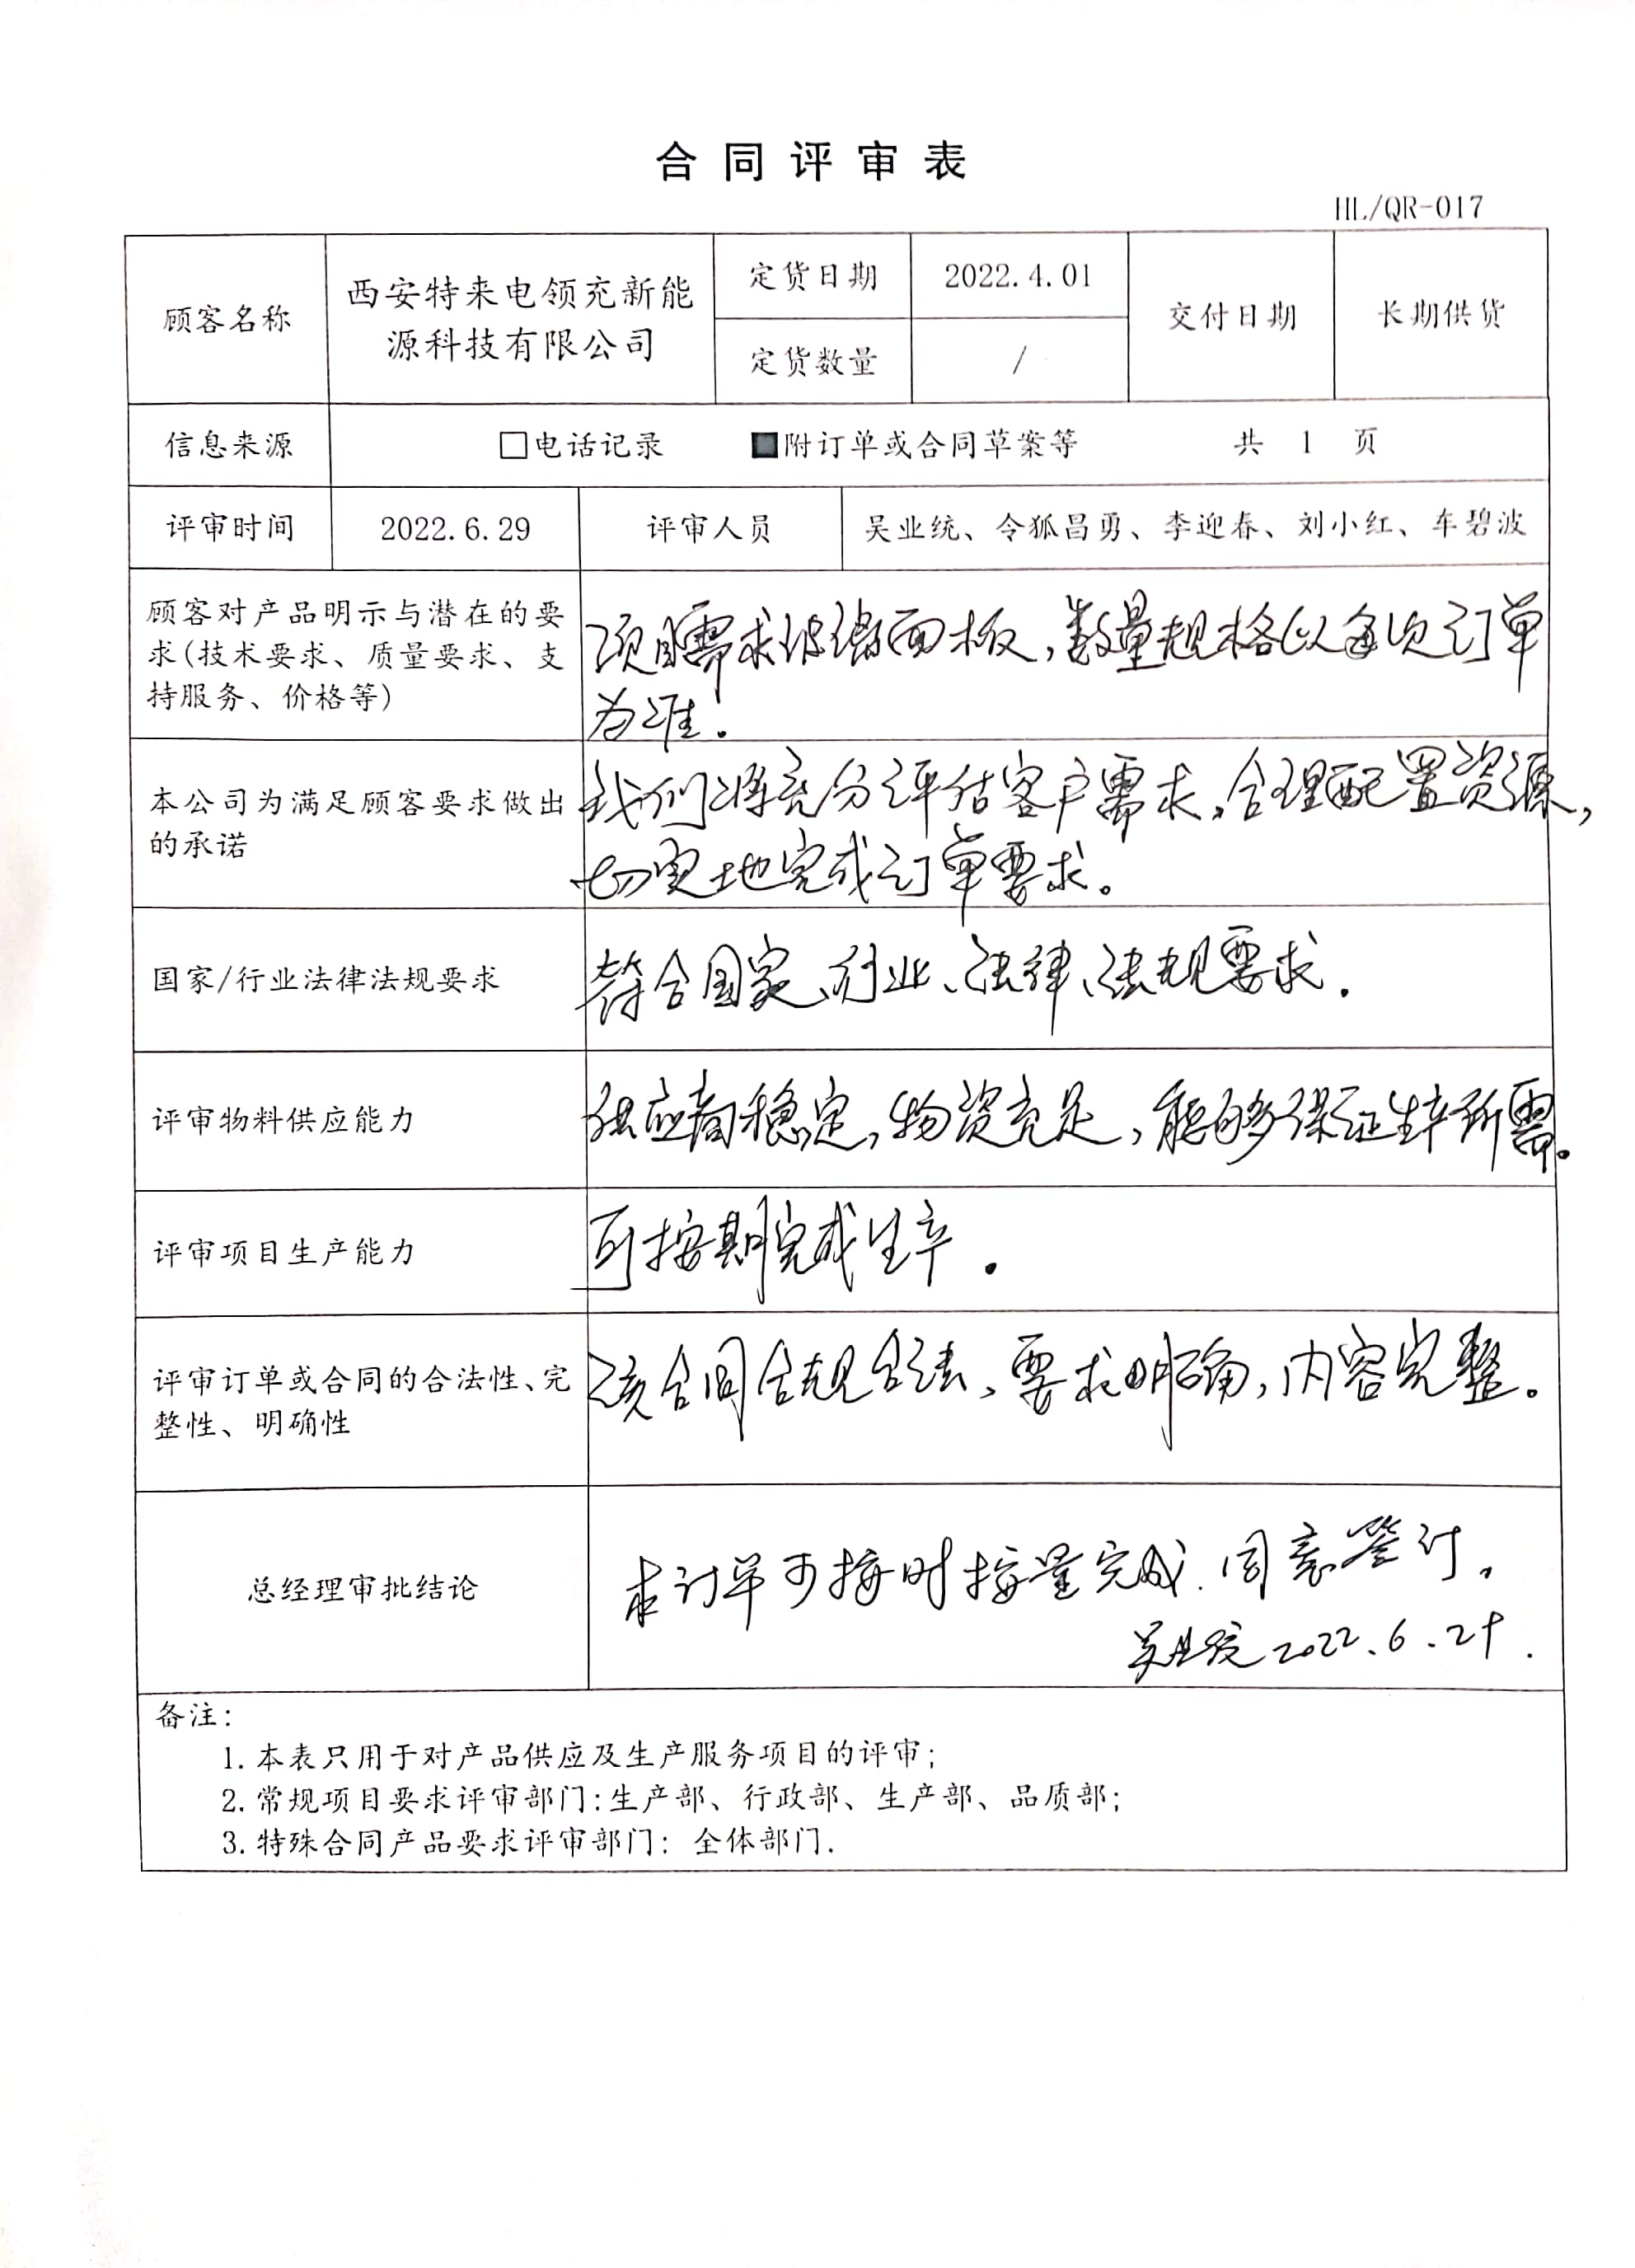 合同评审表
HL/QR-017
顾客名称
西安特来电领充新能
源科技有限公司
定货日期
2022.4.01
定货数量
/
交付日期
长期供货
信息来源
□电话记录 ■附订单或合同草案等 共 1 页
评审时间
2022.6.29
评审人员
吴业统、令狐昌勇、李迎春、刘小红、车碧波
顾客对产品明示与潜在的要
求(技术要求、质量要求、支
持服务、价格等)
项目需求玻璃面板,数量规格以每次订单
为准.
本公司为满足顾客要求做出
的承诺
我们将充分评估客户需求,合理配置资源,
切实地完成订单要求。
国家/行业法律法规要求
符合国家、行业、法律、法规要求.
评审物料供应能力
供应商稳定,物资充足,能够保证生产所需。
评审项目生产能力
可按期完成生产.
评审订单或合同的合法性、完
整性、明确性
该合同合规合法、要求明确,内容完整。
总经理审批结论
本订单可按时按量完成.同意签订。
吴业统 2022.6.29.
备注:
1.本表只用于对产品供应及生产服务项目的评审;
2.常规项目要求评审部门:生产部、行政部、生产部、品质部;
3.特殊合同产品要求评审部门: 全体部门.